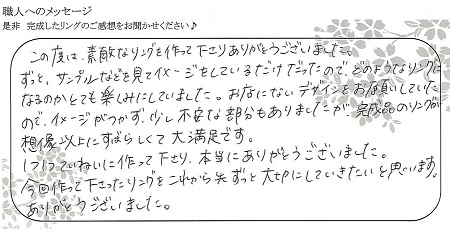 職人へのメッセージ
是非 完成したリングのご感想をお聞かせください♪
この度は、素敵なリングを作って下さりありがとうございました。
ずっと、サンプルなどを見てイメージをしているだけだったので、どのようなリングに
なるのかとても楽しみにしていました。あまりにないデザインをお願いしていた
ので、イメージがつかず、少し不安な部分もありましたが、完成品のリングが
想像以上にすばらしくて大満足です。
1つ1つていねいに作って下さり、本当にありがとうございました。
今回作って下さったリングをこれから先ずっと大切にしていきたいと思います。
ありがとうございました。